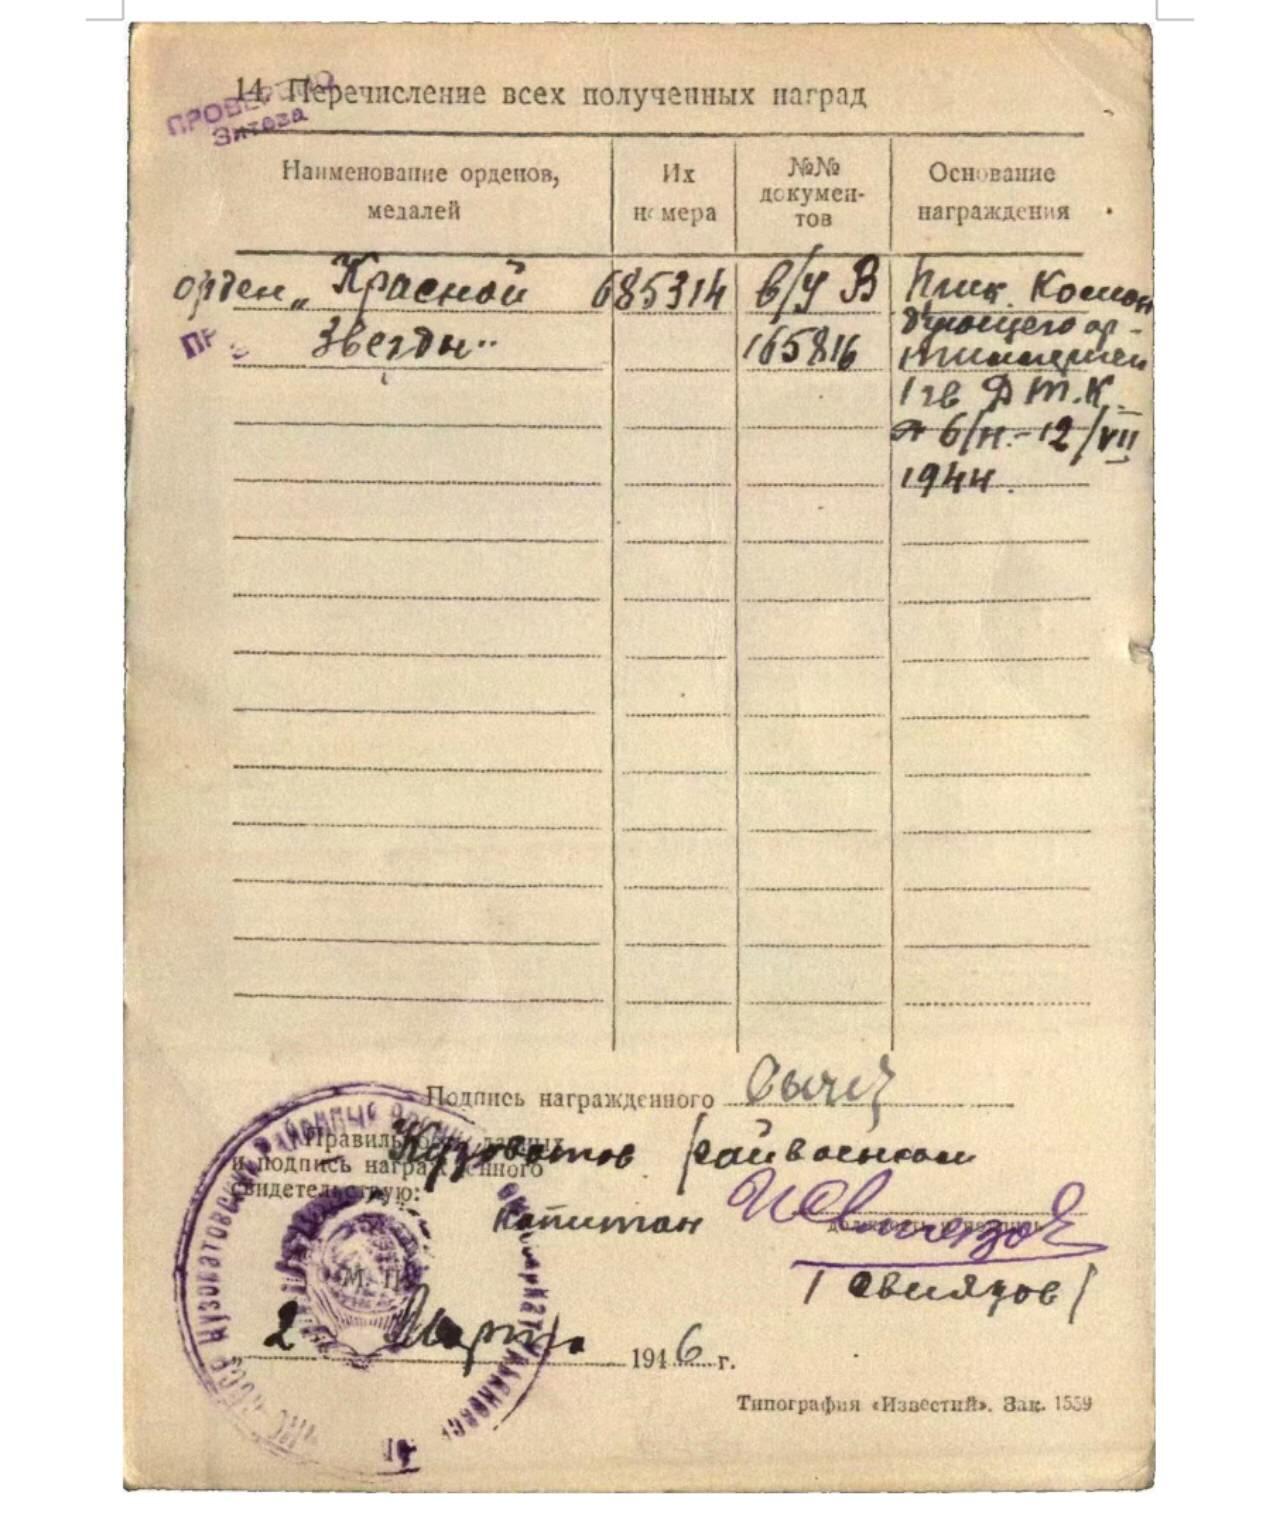 14. Перечисление всех полученных наград
ПРОВЕРЕНО
Наименование орденов,
медалей
Их
номера
№№
докумен-
тов
Основание
награждения
орден „Красной
Звезды"
685314
в/у В
165816
Прик. Коман
дующего ар-
тиллерией
1 гв Д Т.К.
б/н.-12/VII
1944.
Подпись награжденного
Правильность данных
и подпись награжденного
свидетельствую:
Кузоватов райвоенком
капитан
должность и подпись
/Свиязов/
М. П.
2 Марта 1946 г.
Типография «Известий». Зак. 1559